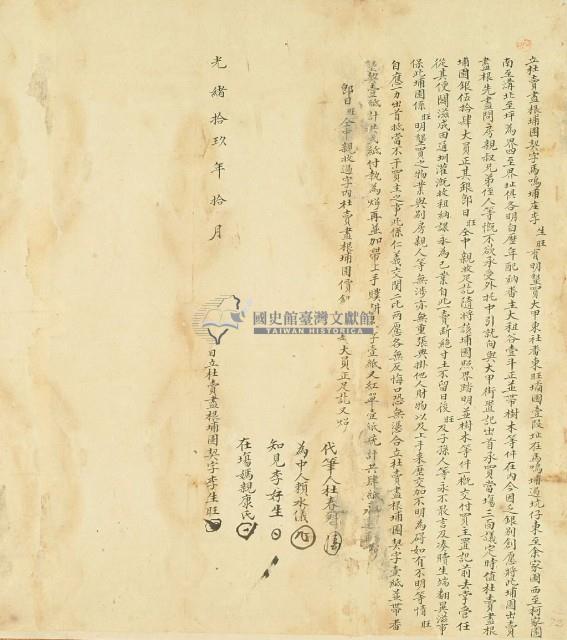 立杜賣盡根埔園契字馬鳴埔庄李生旺有明墾買大甲東社番東旺埔園壹段址在馬鳴埔過坑仔東至余家園西至柯家園
南至溝北至坪為界四至界址俱各明白歷年配納番主大租谷壹斗正並帶樹木等件在內今因乏銀別創愿將此埔園出賣
盡根先盡問房親叔兄弟侄人等俱不欲承受外托中引就向與大甲街置記出首承買當塲三面議定時值杜賣盡根
埔園銀伍拾肆大員正其銀即日旺仝中親收足訖隨將該埔園照界踏明並樹木等件一概交付買主置記前去掌管任
從其便開滋成田通圳灌溉收租納課永為己業自此一賣斷絕寸土不留日後旺及子孫人等永不敢言及湊贖生端翻異滋事
保此埔園係旺明墾買之物業與別房親人等無涉亦無重張典掛他人財物以及上手來歷交加不明為碍如有不明等情旺
自應一力出首抵當不干買主之事此係仁義交関二比兩愿各無反悔口恐無憑合立杜賣盡根埔園契字壹紙並帶番
墾契壹紙計共貳紙付執為炤再並加帶上手字壹紙又紅單壹紙統計共肆紙
即日旺仝中親收過字內杜賣盡根埔園價大員正足訖又炤
國史館臺灣文獻館
TAIWAN HISTORICA
代筆人杜春
為中人賴永儀
知見李好生
在塲媽親康氏
光緒拾玖年拾月日立杜賣盡根埔園契字李生旺